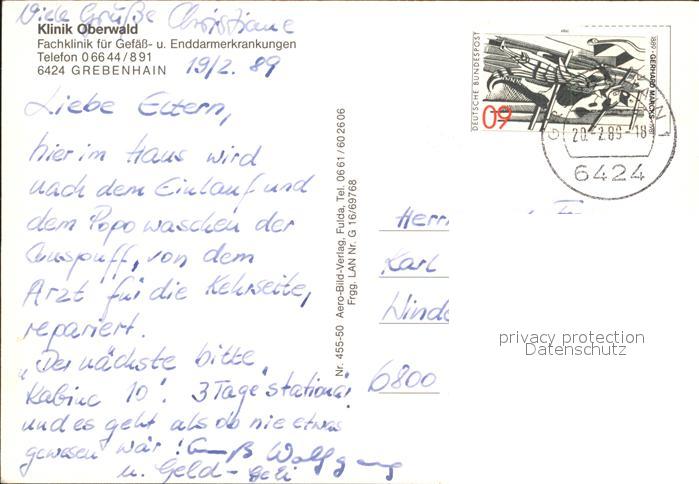 Viele Grüße Christiane
Klinik Oberwald
Fachklinik für Gefäß- u. Enddarmerkrankungen
Telefon 0 66 44 / 8 91
6424 GREBENHAIN
19/2. 89
Liebe Eltern,
hier im Haus wird
nach dem Einlauf und
dem Popo waschen der
Auspuff, von dem
Arzt für die Kehrseite,
repariert.
„Der nächste bitte,
Kabine 10". 3 Tage stationär
und es geht als ob nie etwas
gewesen wär! Gruß Wolfgang
u. Geld-
Nr. 455-50 Aero-Bild-Verlag, Fulda, Tel. 06 61 / 60 26 06
Frgg. LAN Nr. G 16/69768
DEUTSCHE BUNDESPOST
60
1889 · GERHARD MARCKS · 1981
20.-2.89-18
6424
Herrn
Karl
6800
privacy protection
Datenschutz